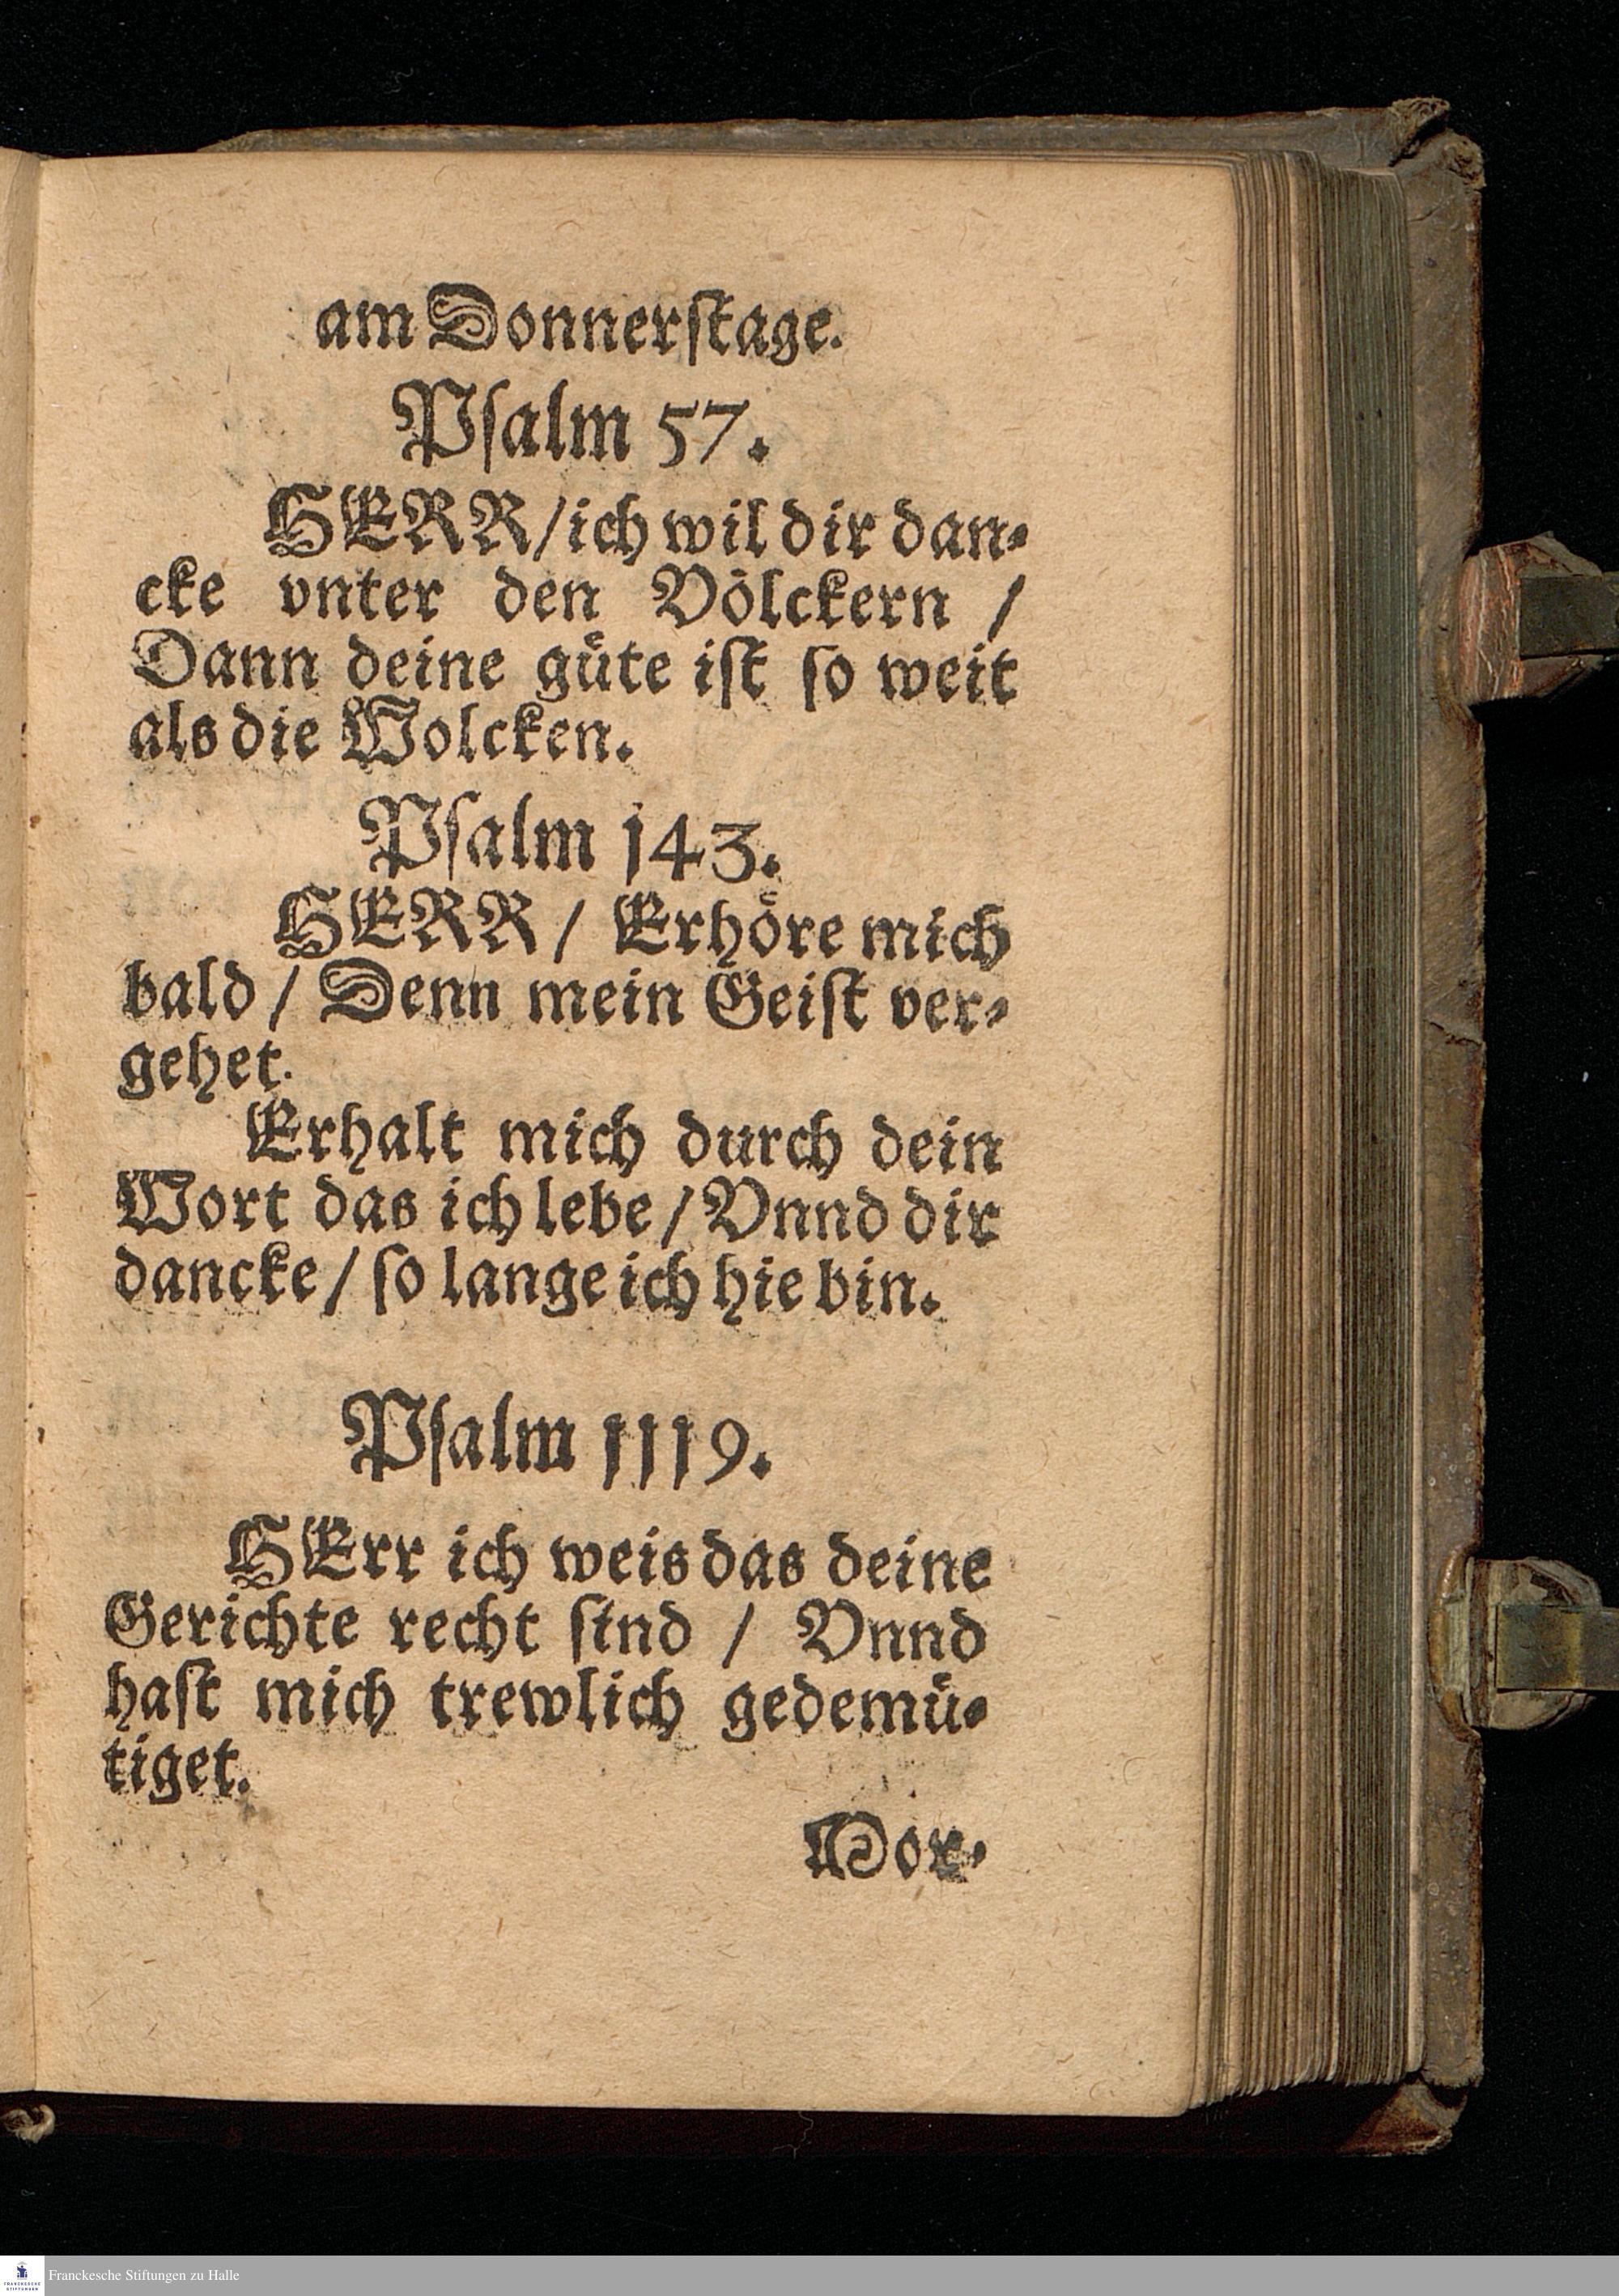 am Donnerſtage.
Pſalm 57.
HERR/ich wil dir dan⸗
cke vnter den Völckern /
Dann deine güte iſt ſo weit
als die Wolcken.
Pſalm 143.
HERR / Erhöre mich
bald / Denn mein Geiſt ver⸗
gehet.
Erhalt mich durch dein
Wort das ich lebe / Vnnd dir
dancke / ſo lange ich hie bin.
Pſalm 1119.
HErr ich weis das deine
Gerichte recht ſind / Vnnd
haſt mich trewlich gedemü⸗
tiget.
Mor⸗
Franckesche Stiftungen zu Halle
FRANCKESCHE
STIFTUNGEN